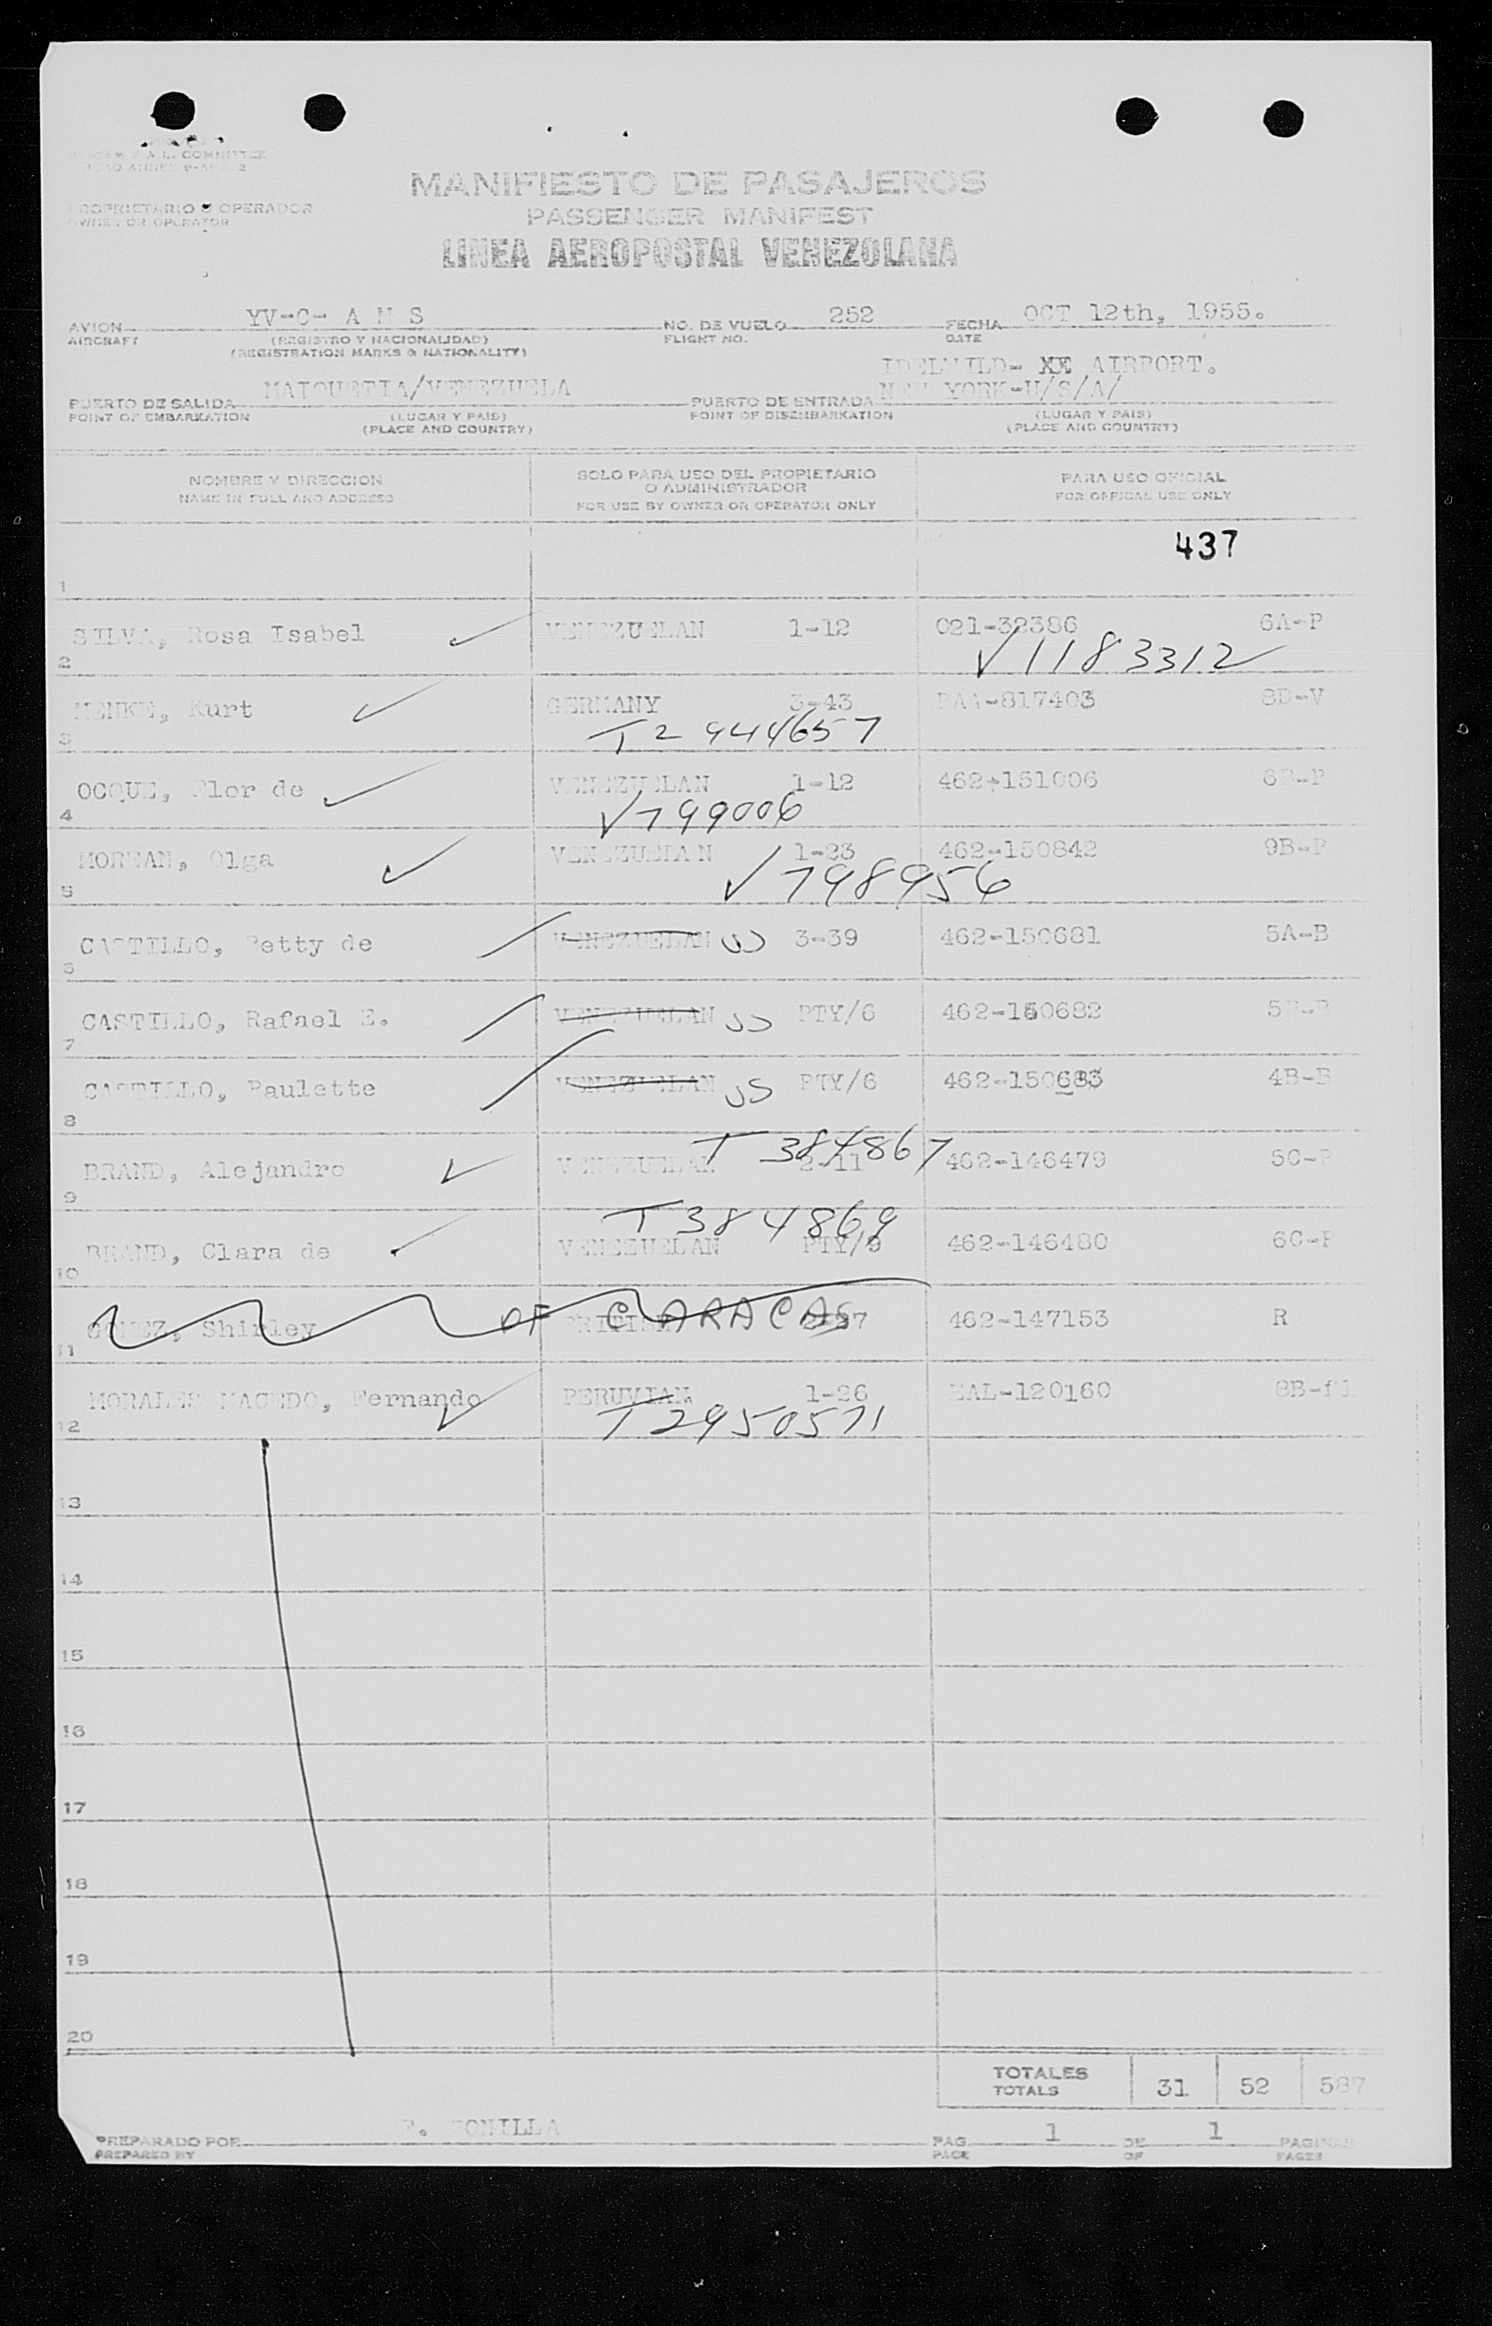 A.L. COMMITTEE
PROPRIETARIO O OPERADOR
OWNER OR OPERATOR
MANIFIESTO DE PASAJEROS
PASSENGER MANIFEST
LINEA AEROPOSTAL VENEZOLANA
AVION YV-C- A M S NO. DE VUELO 252 FECHA OCT 12th, 1955.
AIRCRAFT (REGISTRO Y NACIONALIDAD) FLIGHT NO. DATE
(REGISTRATION MARKS & NATIONALITY)
IDELWILD- XE AIRPORT.
PUERTO DE SALIDA MAIQUETIA/VENEZUELA PUERTO DE ENTRADA NEW YORK-U/S/A/
POINT OF EMBARKATION (LUGAR Y PAIS) POINT OF DISEMBARKATION (LUGAR Y PAIS)
(PLACE AND COUNTRY) (PLACE AND COUNTRY)
NOMBRE Y DIRECCION SOLO PARA USO DEL PROPIETARIO PARA USO OFICIAL
NAME IN FULL AND ADDRESS O ADMINISTRADOR FOR OFFICIAL USE ONLY
FOR USE BY OWNER OR OPERATOR ONLY
437
1
SILVA, Rosa Isabel VENEZUELAN 1-12 021-32386 6A-P
2 V1183312
MENKE, Kurt GERMANY 3-43 PAA-817403 8D-V
3 T2944657
OCQUE, Flor de VENEZUELAN 1-12 462-151006 8B-P
4 V799006
MORMAN, Olga VENEZUELAN 1-23 462-150842 9B-P
5 V798956
CASTILLO, Betty de VENEZUELAN US 3-39 462-150681 5A-B
6
CASTILLO, Rafael E. VENEZUELAN US PTY/6 462-150682 5B-B
7
CASTILLO, Paulette VENEZUELAN US PTY/6 462-150683 4B-B
8
T384867
BRAND, Alejandro VENEZUELAN 2-11 462-146479 5C-P
9
T384869
BRAND, Clara de VENEZUELAN PTY/9 462-146480 6C-P
10
OF CARACAS
GOMEZ, Shirley BRITISH 462-147153 R
11
MORALES MACEDO, Fernando PERUVIAN 1-26 EAL-120160 8B-
12 T2950571
13
14
15
16
17
18
19
20
TOTALES 31 52 587
TOTALS
PREPARADO POR BONILLA PAG. 1 DE 1 PAGINAS
PREPARED BY PAGE OF PAGES